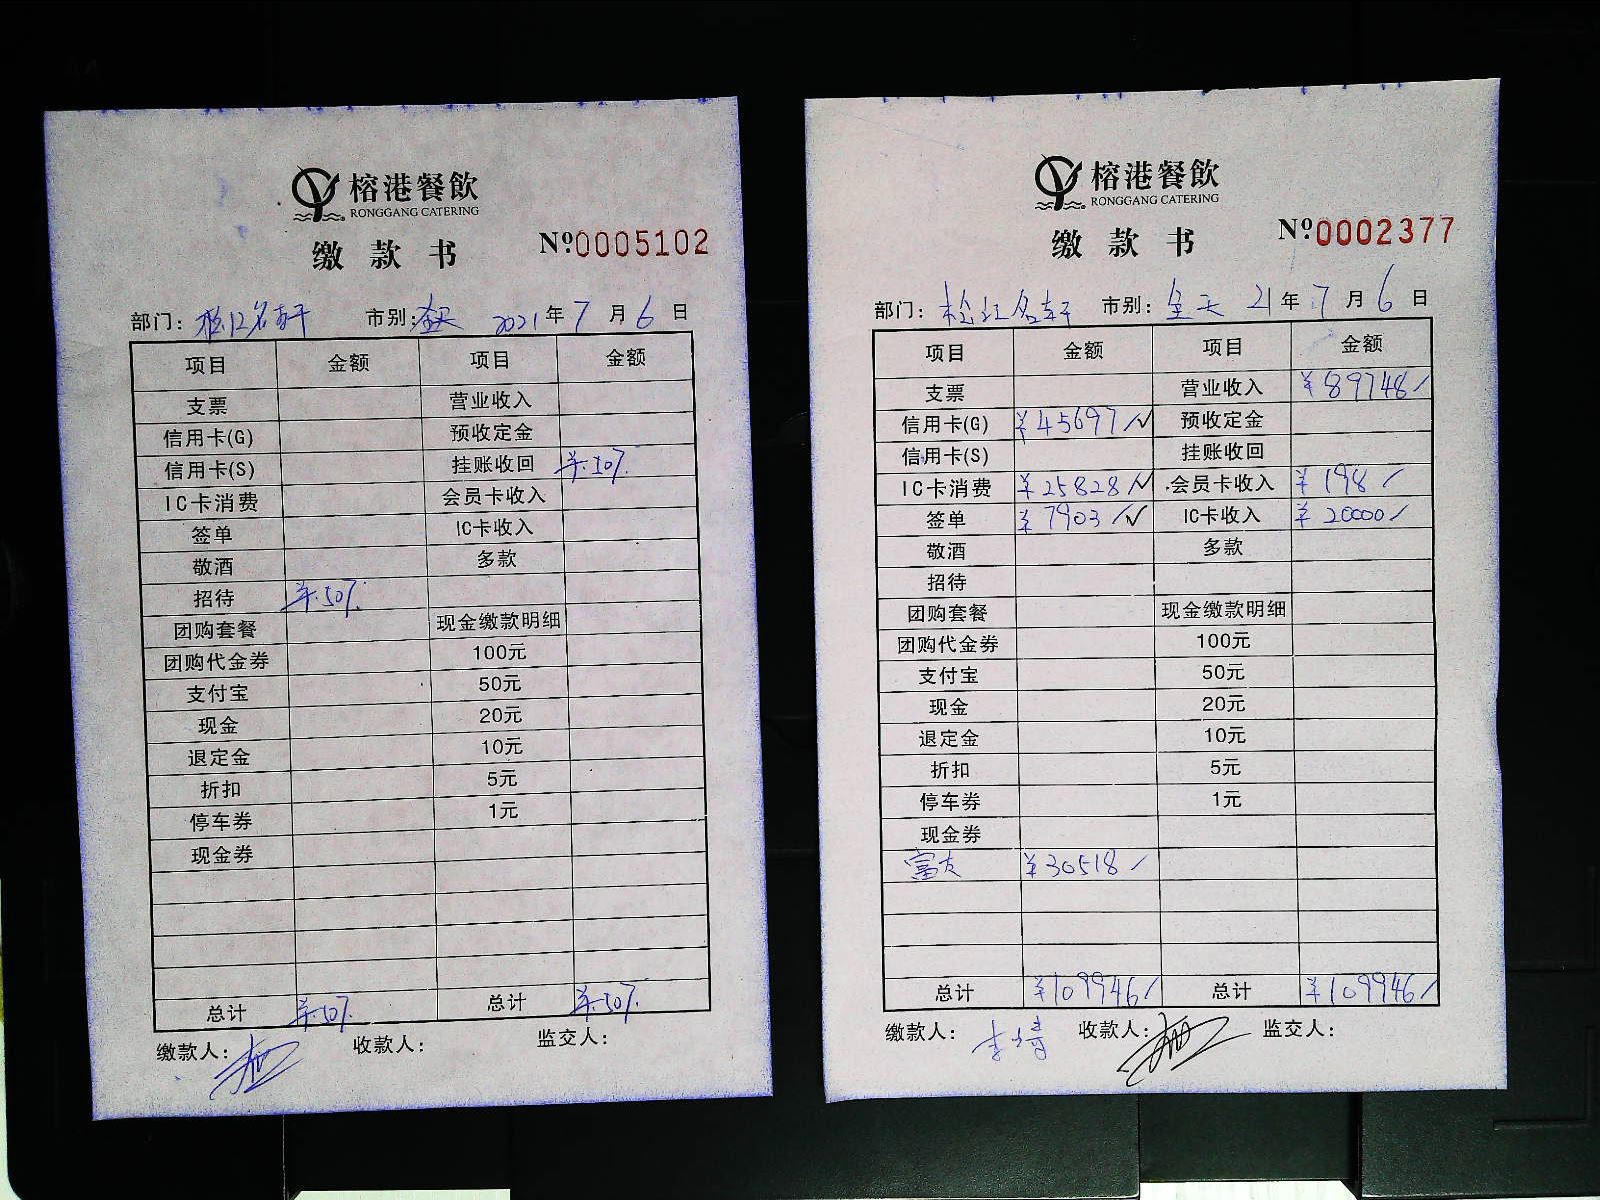 榕港餐飲
RONGGANG CATERING
缴款书 №0005102
部门: 松江名轩 市别: 全天 2021年7月6日
项目 金额 项目 金额
支票 营业收入
信用卡(G) 预收定金
信用卡(S) 挂账收回
IC卡消费 会员卡收入
签单 IC卡收入
敬酒 多款
招待
团购套餐 现金缴款明细
团购代金券 100元
支付宝 50元
现金 20元
退定金 10元
折扣 5元
停车券 1元
现金券
总计 总计
缴款人: 收款人: 监交人:
榕港餐飲
RONGGANG CATERING
缴款书 №0002377
部门: 松江名轩 市别: 全天 21年7月6日
项目 金额 项目 金额
支票 营业收入 ¥89748
信用卡(G) ¥45697 预收定金
信用卡(S) 挂账收回
IC卡消费 ¥25828 会员卡收入 ¥198
签单 ¥7903 IC卡收入 ¥20000
敬酒 多款
招待
团购套餐 现金缴款明细
团购代金券 100元
支付宝 50元
现金 20元
退定金 10元
折扣 5元
停车券 1元
现金券
富友 ¥30518
总计 ¥109946 总计 ¥109946
缴款人: 收款人: 监交人: